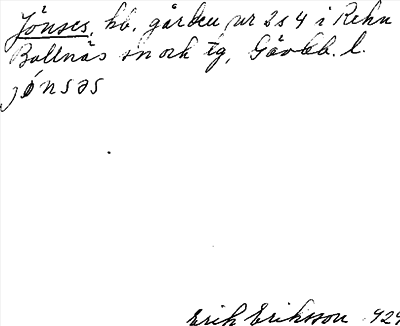 Jönses, hb. gården nr 2 s 4 i Rehn
Bollnäs sn och tg, Gävleb. l.
jónsəs
Erik Eriksson 1929